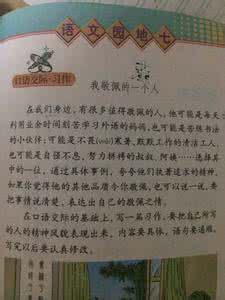 语文园地七
口语交际·习作
我敬佩的一个人
在我们身边，有很多值得敬佩的人，他可能是每天
利用业余时间刻苦学习外语的妈妈，也可能是苦练书法
的小伙伴；可能是不畏(wèi)寒暑、默默工作的清洁工人，
也可能是自强不息、努力拼搏的叔叔、阿姨……选择其
中的一位，通过具体事例，夸夸他们执着追求的精神，
如果你觉得他的其他品质令你敬佩，也可以说一说，要
把事情说清楚，表达出自己的敬佩之情。
在口语交际的基础上，写一篇习作，要把自己所写
的人的精神风貌表现出来，内容要具体，语句要通顺，
写完以后要认真修改。